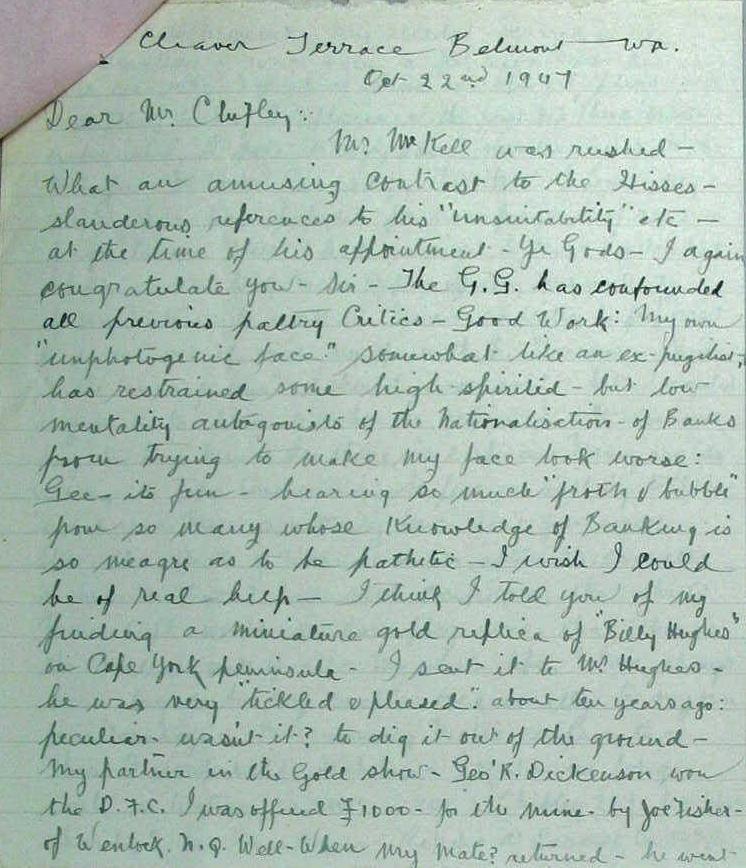 Cleaver Terrace Belmont W.A.
Oct 22nd 1947
Dear Mr. Chifley:
Mr McKell was rushed —
What an amusing contrast to the Hisses —
slanderous references to his "unsuitability" etc —
at the time of his appointment - Ye Gods - I again
congratulate you - Sir - The G.G. has confounded
all previous paltry Critics - Good Work: My own
"unphotogenic face" somewhat like an ex-pugilist,
has restrained some high-spirited - but low
mentality antagonists of the Nationalisation - of Banks
from trying to make my face look worse:
Gee - its fun - hearing so much "froth & bubble"
from so many whose Knowledge of Banking is
so meagre as to be pathetic - I wish I could
be of real help - I think I told you of my
finding a miniature gold replica of "Billy Hughes"
on Cape York peninsula - I sent it to Mr Hughes -
he was very "tickled & pleased". about ten years ago:
peculiar - wasn't it? to dig it out of the ground -
My partner in the Gold show - Geo' R. Dickenson won
the D.F.C. I was offered £1000 - for the mine - by Joe Fisher -
of Wenlock. N.Q. Well - When my Mate? returned - he went